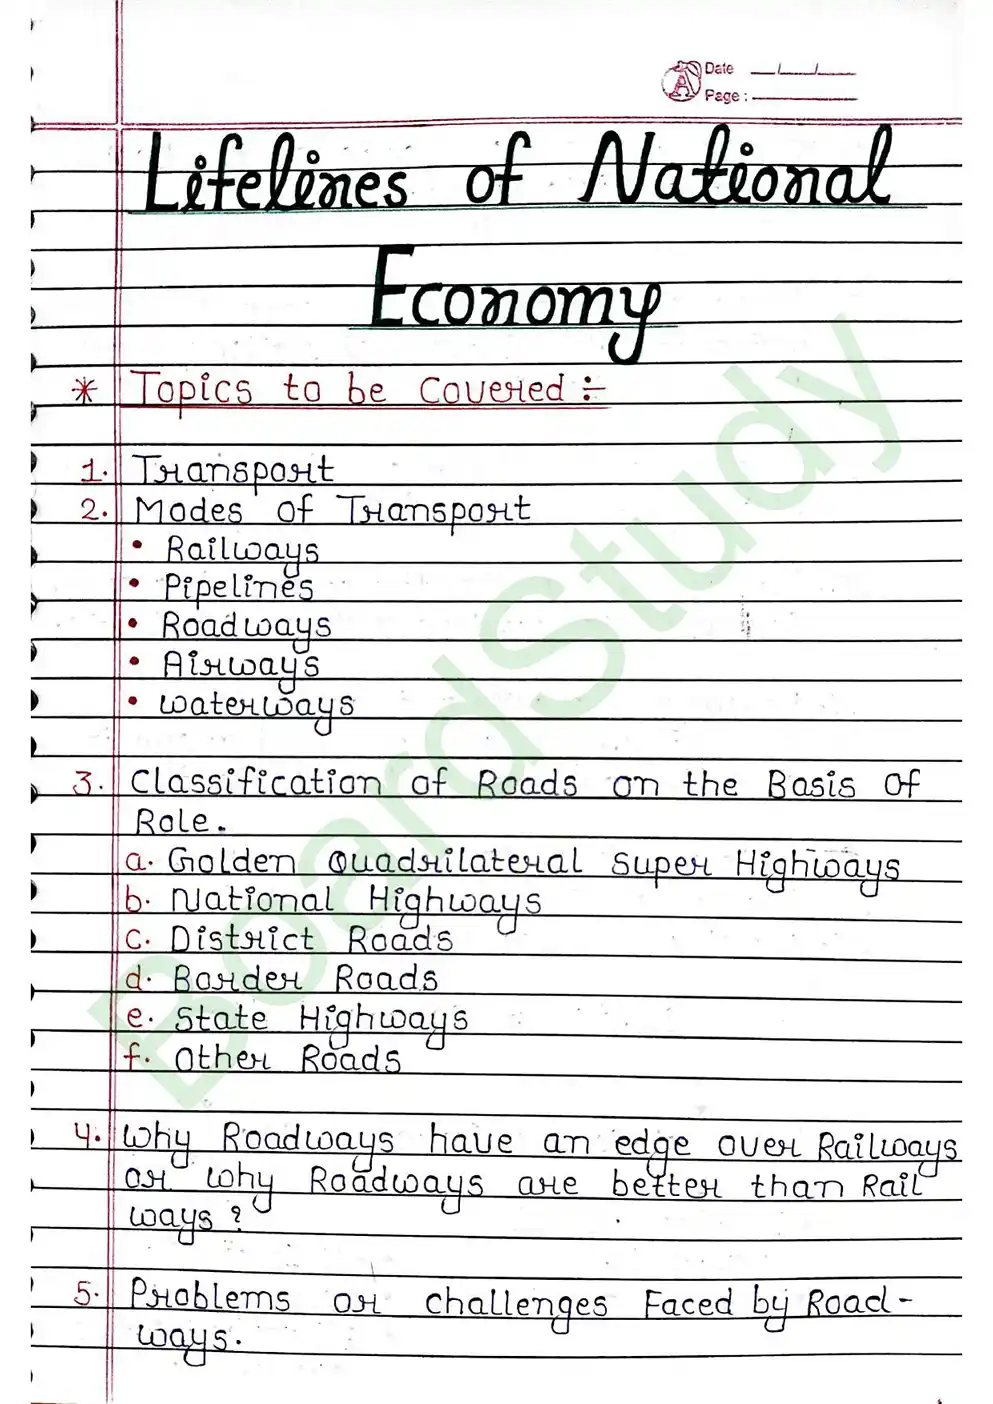 Date __/__/__
Page : ______
Lifelines of National
Economy
* Topics to be Covered :-
1. Transport
2. Modes of Transport
• Railways
• Pipelines
• Roadways
• Airways
• waterways
3. Classification of Roads on the Basis of
Role.
a. Golden Quadrilateral Super Highways
b. National Highways
c. District Roads
d. Border Roads
e. State Highways
f. Other Roads
4. Why Roadways have an edge over Railways
or why Roadways are better than Rail
ways ?
5. Problems or challenges Faced by Road-
ways.
BoardStudy